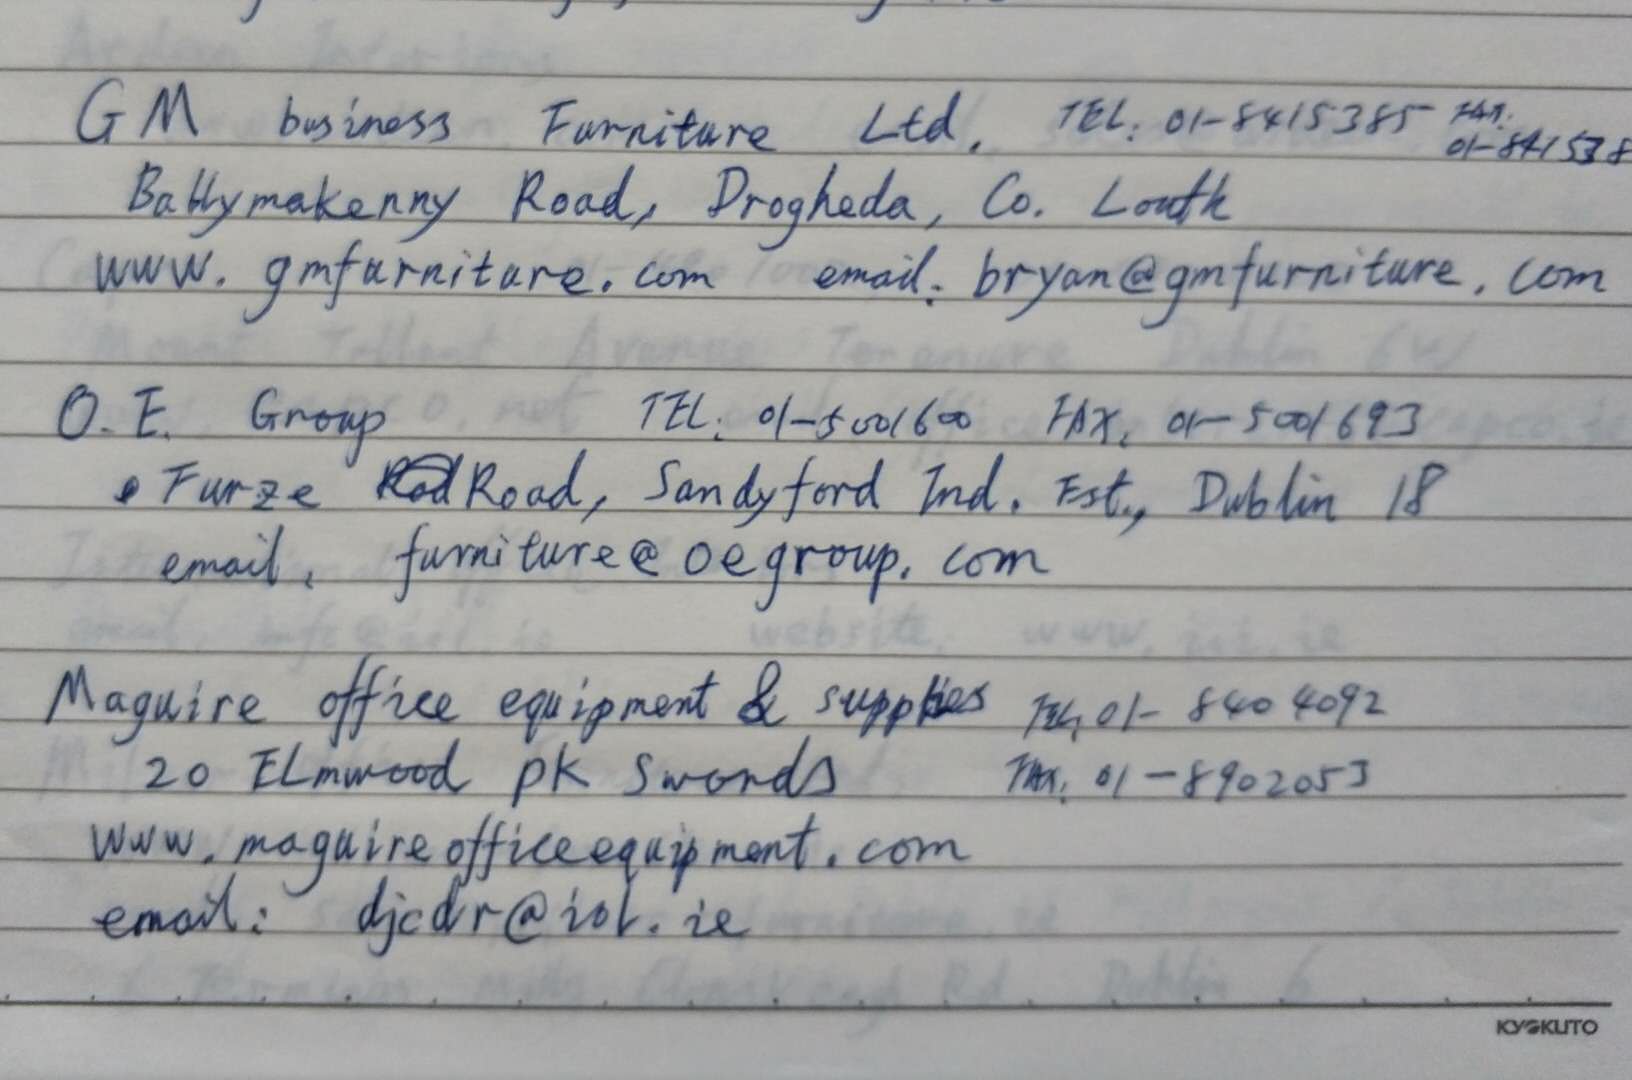 GM business Furniture Ltd. TEL: 01-8415385 FAX:
01-841538
Ballymakenny Road, Drogheda, Co. Louth
www.gmfurniture.com email: bryan@gmfurniture.com
O.E. Group TEL: 01-5001600 FAX: 01-5001693
Furze Road, Sandyford Ind. Est., Dublin 18
email: furniture@oegroup.com
Maguire office equipment & supplies TEL: 01-8404092
20 ELmwood pk Swords FAX: 01-8902053
www.maguireofficeequipment.com
email: djcdr@iol.ie
KYOKUTO